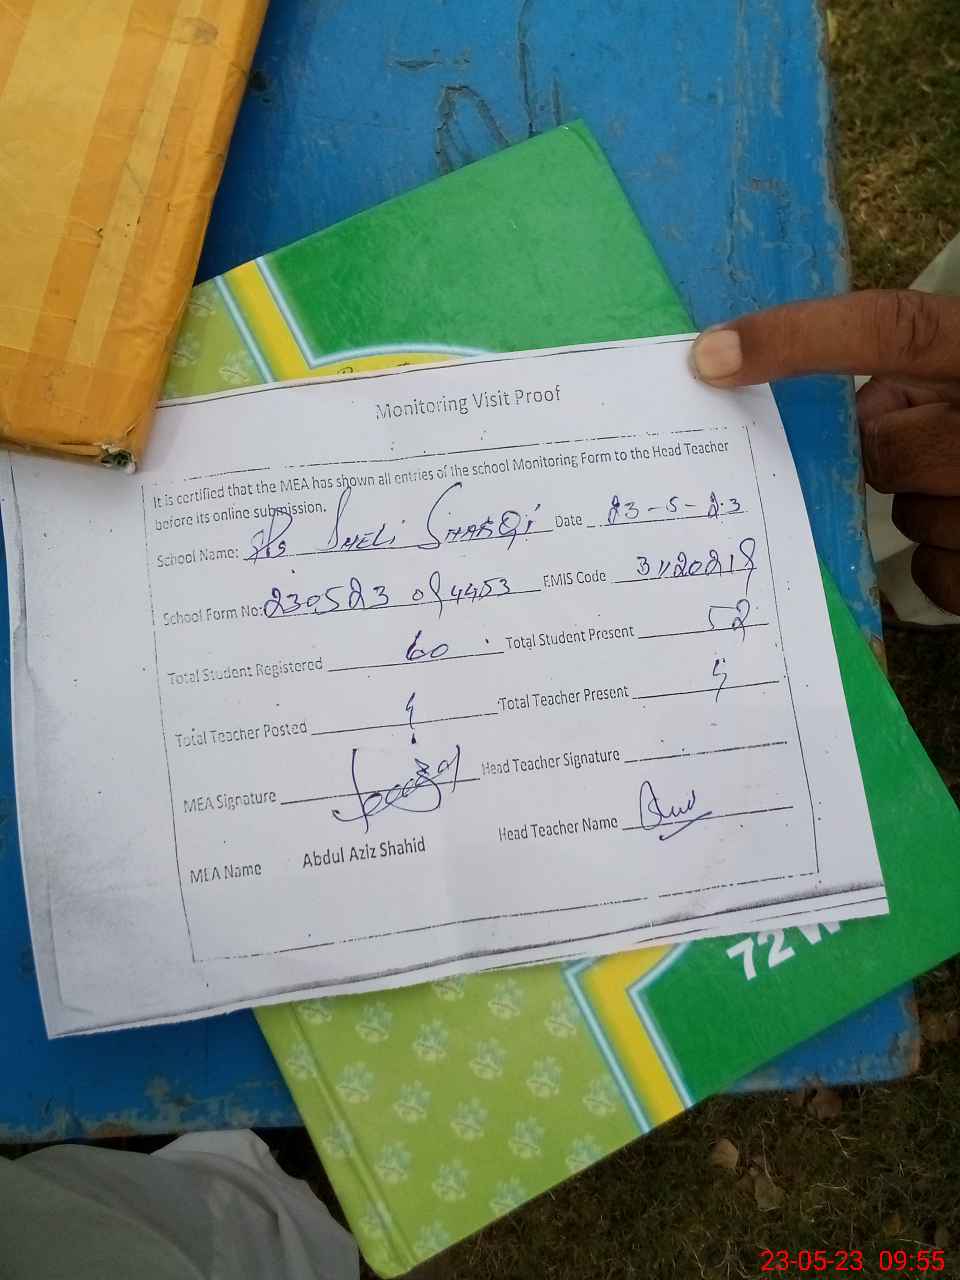 Monitoring Visit Proof
It is certified that the MEA has shown all entries of the school Monitoring Form to the Head Teacher
before its online submission.
School Name: SHELI SHARQI Date 23-5-23
School Form No: 230523 EMIS Code
Total Student Registered 60 Total Student Present 52
Total Teacher Posted Total Teacher Present
MEA Signature Head Teacher Signature
MEA Name Abdul Aziz Shahid Head Teacher Name
72
23-05-23 09:55